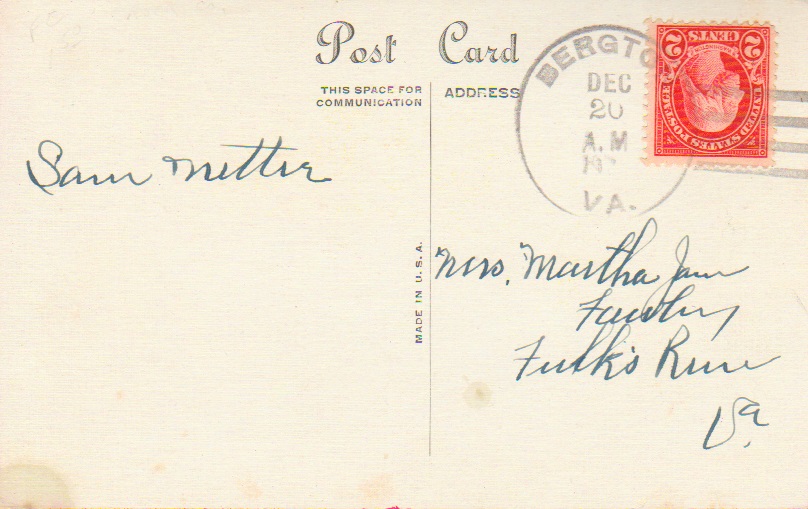 Post Card
THIS SPACE FOR COMMUNICATION
ADDRESS
BERGTO
DEC
20
A.M
VA.
UNITED STATES POSTAGE
2 CENTS 2
Sam
MADE IN U.S.A.
Mrs. Martha Jane
Fawley
Fulk's Run
Va.